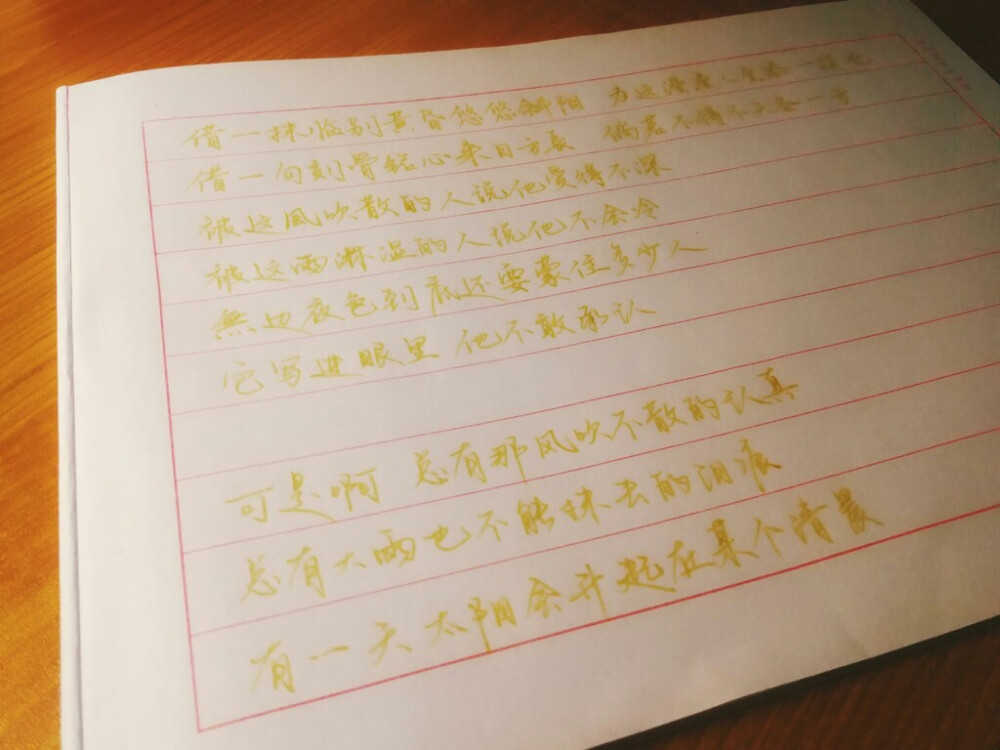 借一抹临别黄昏悠悠斜阳 为这漫漫人生添一
借一句刻骨铭心来日方長 倘若不得不 一方
被这風吹散的人说他愛得不深
被这雨淋湿的人说他不会冷
無边夜色到底还要蒙住多少人
它写进眼里 他不敢承认
可是啊 总有那风吹不散的认真
总有大雨也不能抹去的泪痕
有一天太阳会升起在某个清晨